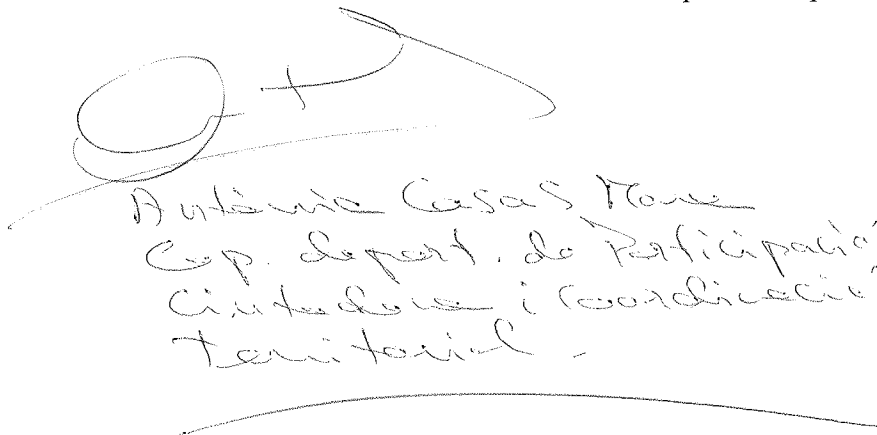 Antònia Casas More
Cap. depart. de Participació
Ciutadana i Coordinació
Territorial.